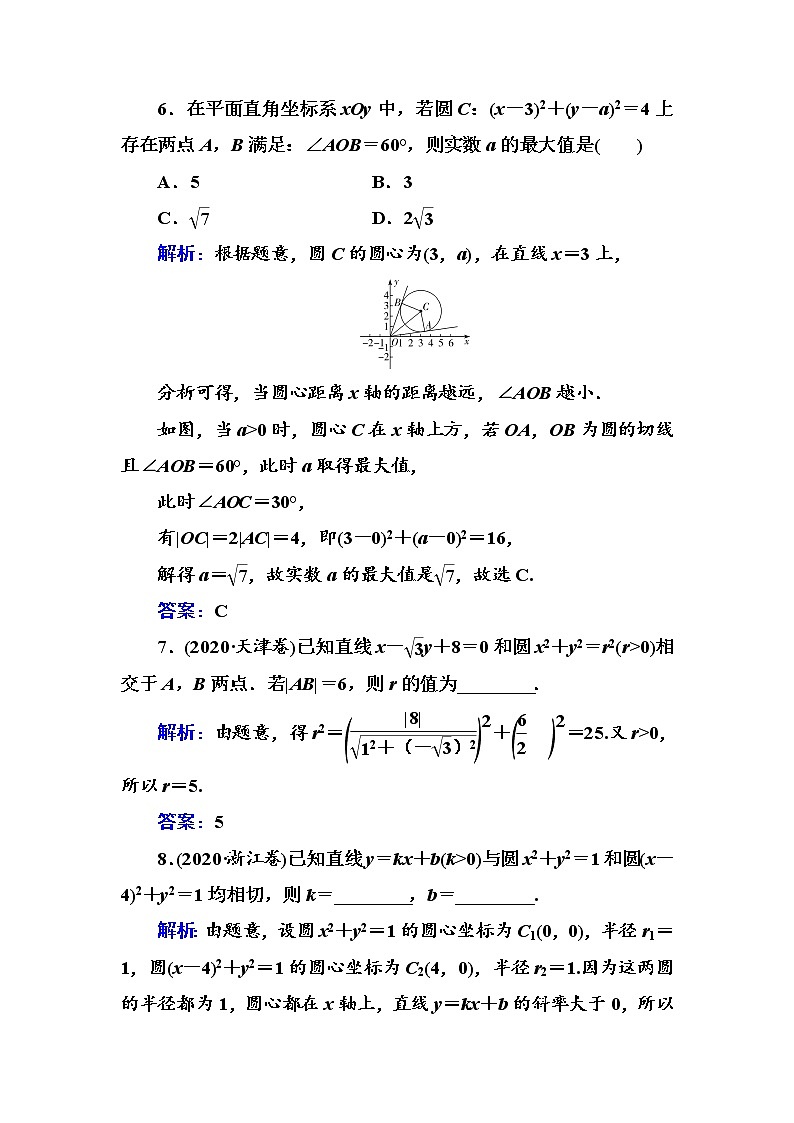 6．在平面直角坐标系 xOy 中，若圆 C：(x－3)²＋(y－a)²＝4 上
存在两点 A，B 满足：∠AOB＝60°，则实数 a 的最大值是(　　)
A．5　　B．3
C．√7　　D．2√3
解析：根据题意，圆 C 的圆心为(3，a)，在直线 x＝3 上，
y
4
3
2
1
B
C
A
－2－1 O 1 2 3 4 5 6 x
－1
－2
分析可得，当圆心距离 x 轴的距离越远，∠AOB 越小．
如图，当 a>0 时，圆心 C 在 x 轴上方，若 OA，OB 为圆的切线
且∠AOB＝60°，此时 a 取得最大值，
此时∠AOC＝30°，
有|OC|＝2|AC|＝4，即(3－0)²＋(a－0)²＝16，
解得 a＝√7，故实数 a 的最大值是√7，故选 C.
答案：C
7．(2020·天津卷)已知直线 x－√3y＋8＝0 和圆 x²＋y²＝r²(r>0)相
交于 A，B 两点．若|AB|＝6，则 r 的值为________．
解析：由题意，得 r²＝(|8|/√(1²＋(－√3)²))²＋(6/2)²＝25.又 r>0，
所以 r＝5.
答案：5
8．(2020·浙江卷)已知直线 y＝kx＋b(k>0)与圆 x²＋y²＝1 和圆(x－
4)²＋y²＝1 均相切，则 k＝________，b＝________．
解析：由题意，设圆 x²＋y²＝1 的圆心坐标为 C₁(0，0)，半径 r₁＝
1，圆(x－4)²＋y²＝1 的圆心坐标为 C₂(4，0)，半径 r₂＝1.因为这两圆
的半径都为 1，圆心都在 x 轴上，直线 y＝kx＋b 的斜率大于 0，所以